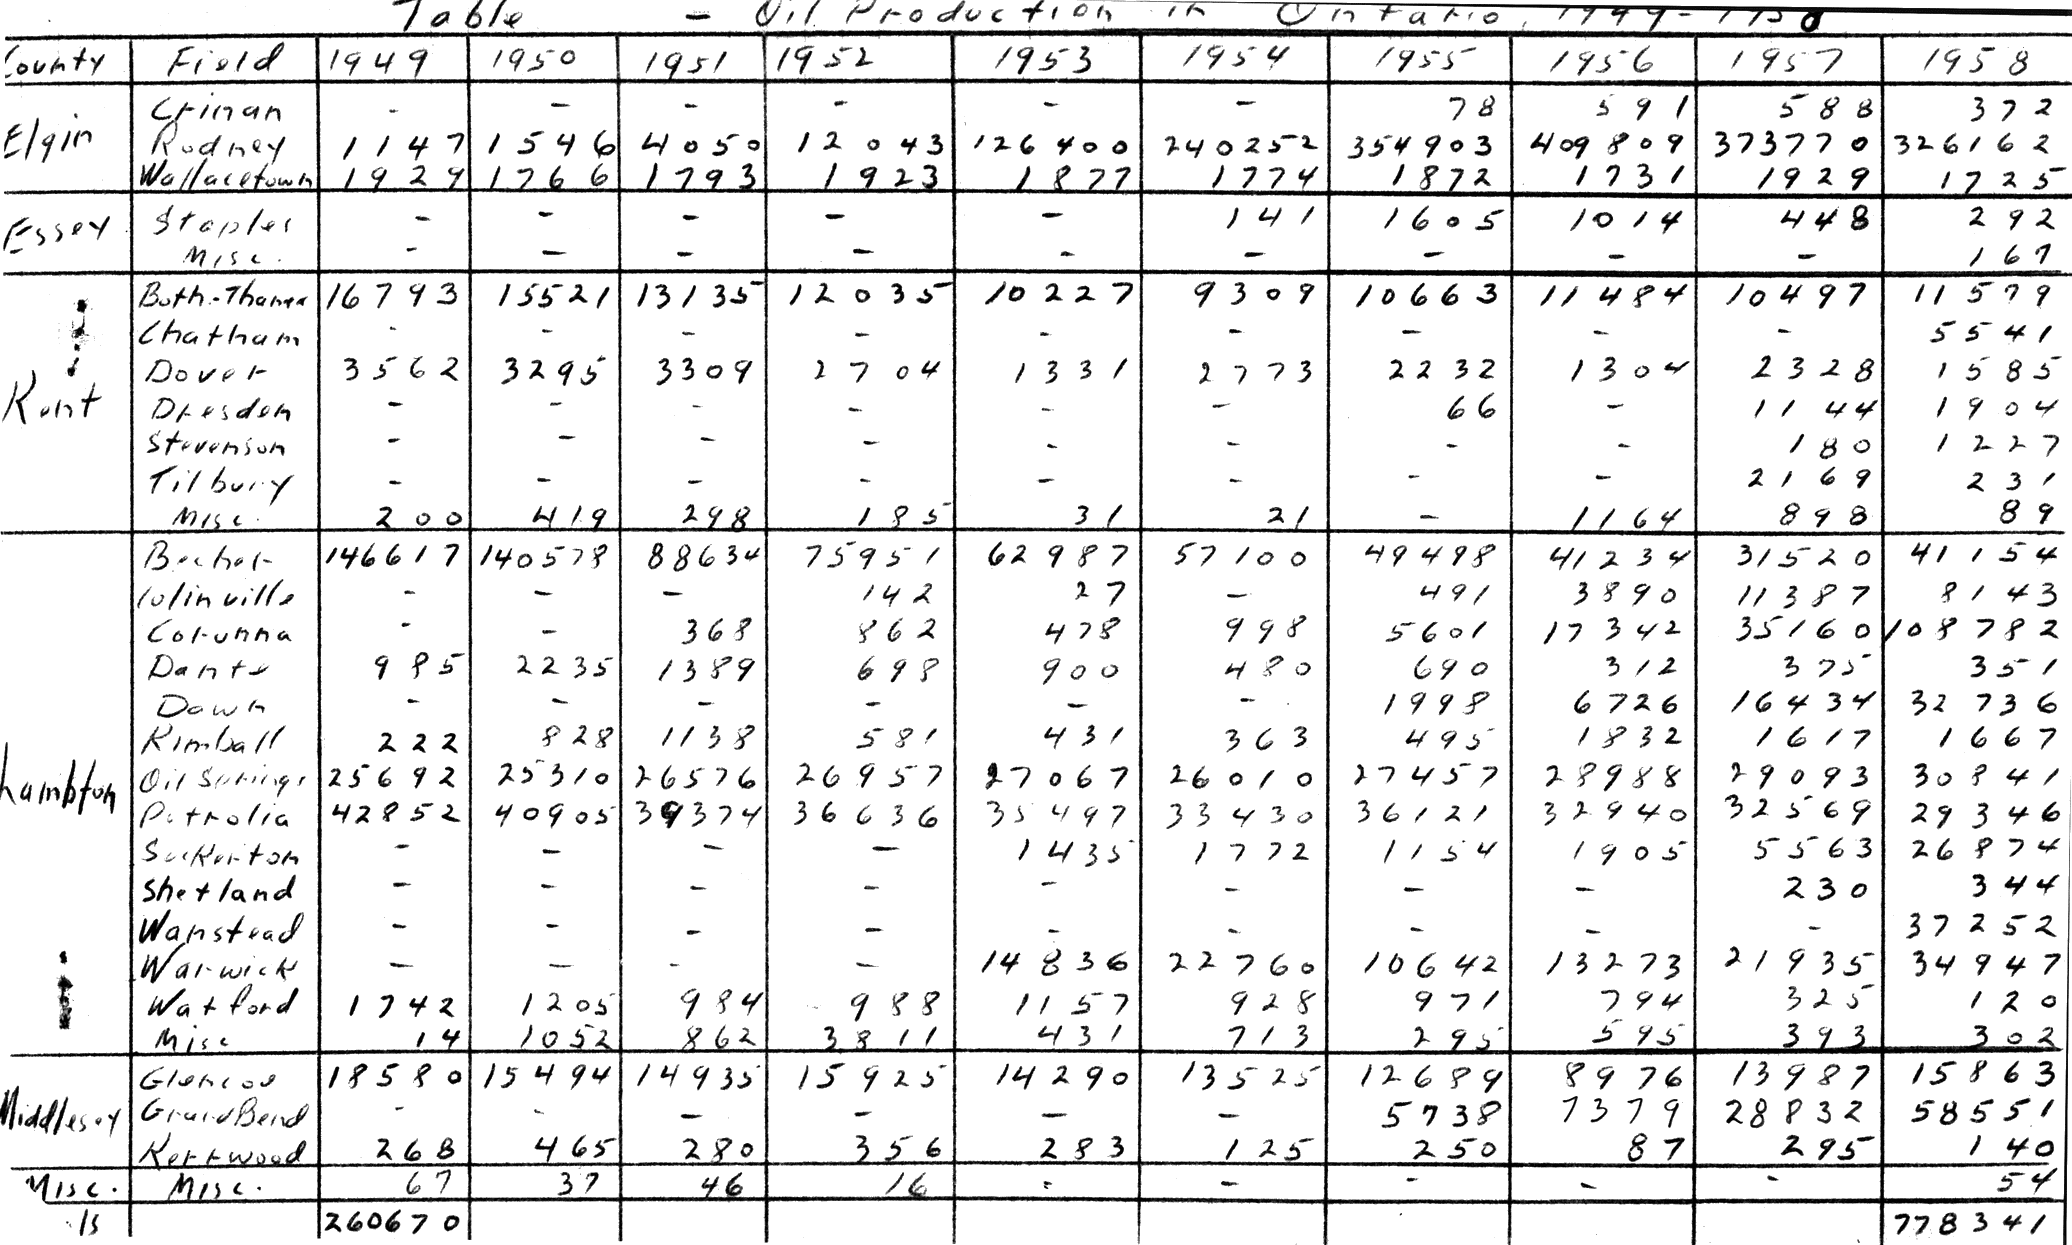 Table - Oil Production in Ontario, 1949-1958
County Field 1949 1950 1951 1952 1953 1954 1955 1956 1957 1958
Crinan - - - - - - 78 591 588 372
Elgin Rodney 1147 1546 4050 12043 126400 240252 354903 409809 373770 326162
Wallacetown 1929 1766 1793 1923 1877 1774 1872 1731 1929 1725
Essex Staples - - - - - 141 1605 1014 448 292
Misc. - - - - - - - - - 167
Both.-Thames 16793 15521 13135 12035 10227 9309 10663 11484 10497 11579
Chatham - - - - - - - - - 5541
Dover 3562 3295 3309 2704 1331 2773 2232 1304 2328 1585
Kent Dresden - - - - - - 66 - 1144 1904
Stevenson - - - - - - - - 180 1227
Tilbury - - - - - - - - 2169 231
Misc. 200 419 298 185 31 21 - 1164 898 89
Becher 146617 140578 88634 75951 62987 57100 49498 41234 31520 41154
Colinville - - - 142 27 - 491 3890 11387 8143
Corunna - - 368 862 478 998 5601 17342 35160 108782
Dante 985 2235 1389 698 900 480 690 312 375 351
Dawn - - - - - - 1998 6726 16434 32736
Kimball 222 828 1138 581 431 363 495 1832 1617 1667
Lambton Oil Springs 25692 25310 26576 26957 27067 26010 27457 28988 29093 30841
Petrolia 42852 40905 39374 36636 35497 33430 36121 32940 32569 29346
Seckerton - - - - 1435 1772 1154 1905 5563 26874
Shetland - - - - - - - - 230 344
Wanstead - - - - - - - - - 37252
Warwick - - - - 14836 22760 10642 13273 21935 34947
Watford 1742 1205 984 988 1157 928 971 794 325 120
Misc 14 1052 862 3811 431 713 295 595 393 302
Glencoe 18580 15494 14935 15925 14290 13525 12689 8976 13987 15863
Middlesex Grand Bend - - - - - - 5738 7379 28832 58551
Kerrwood 268 465 280 356 283 125 250 87 295 140
Misc. Misc. 67 37 46 16 - - - - - 54
ls 260670 778341